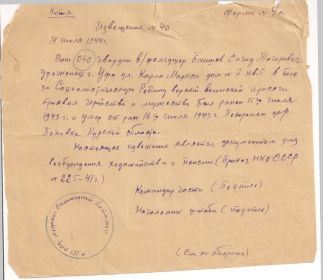 Копия
Форма № 4а
Извещение № 40
14 июля 1944г.
Ваш (040) гвардии в/фельдшер Саид
уроженец г. Уфа ул. Карла Маркса дом № 7 кв 5 в бою
за Социалистическую Родину верный воинской присяге
проявил геройство и мужество был ранен 15го июля
1943 г. и умер от ран 16го июля 1943 г. Похоронен дер.
Курской области.
Настоящее извещение является документом для
возбуждения ходатайства о пенсии (Приказ НКО СССР
№ 225-41 г.)
Командир части (подпись)
Начальник штаба (подпись)
(См на обороте)